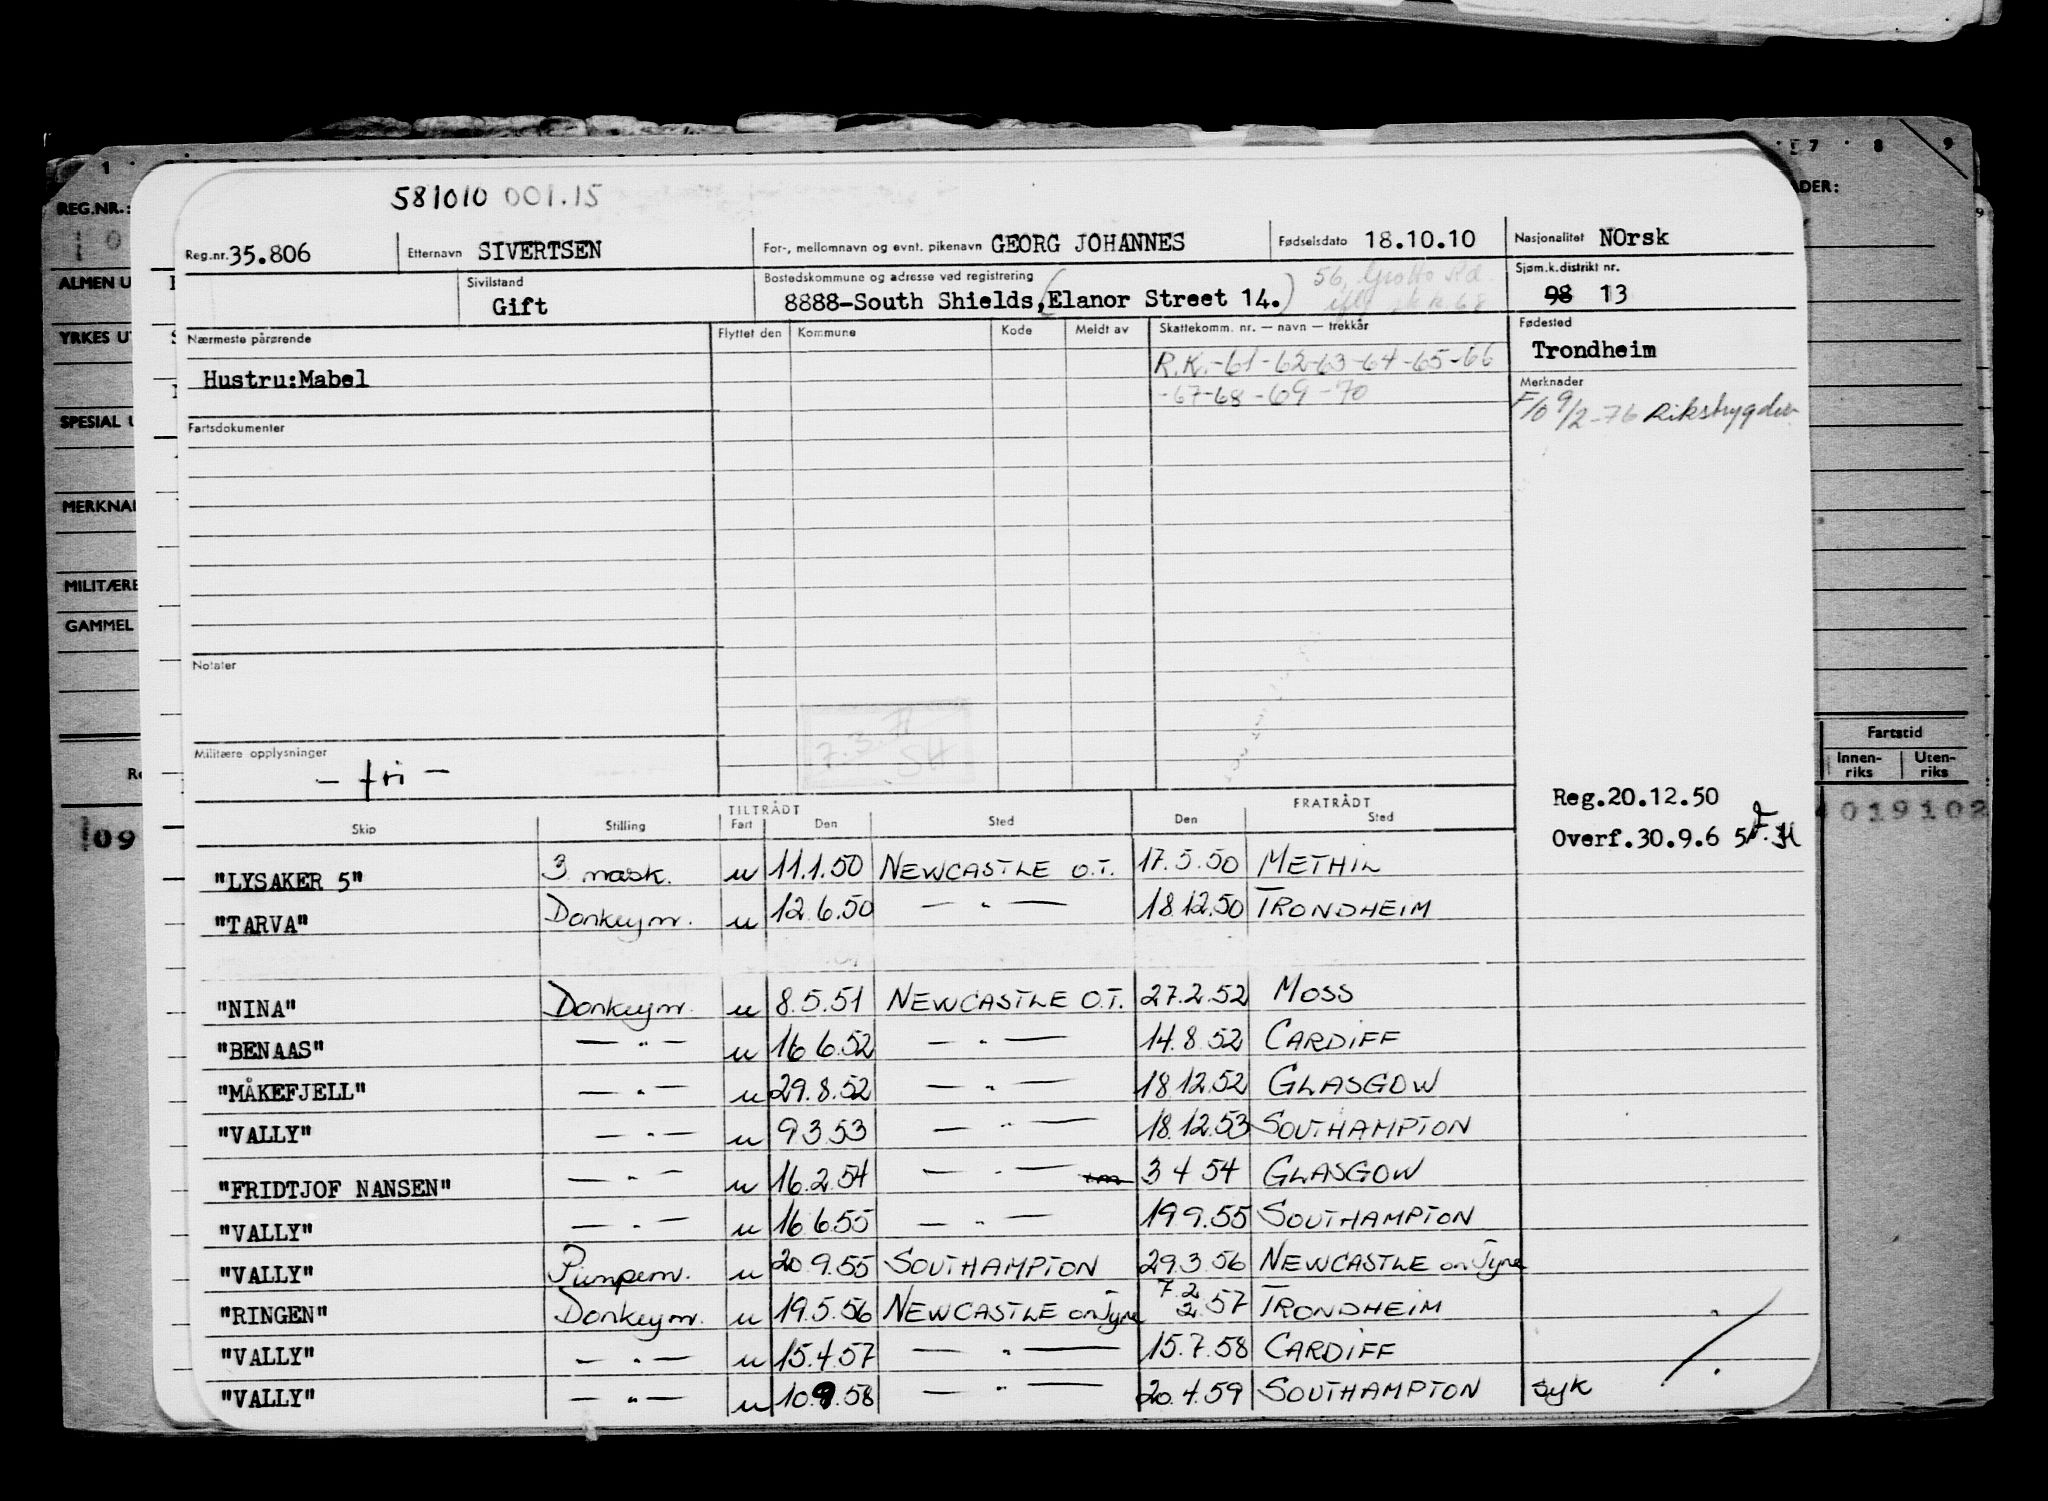 1 7 8 9
581010 001.15
REG.NR.: ADER:
Reg.nr. 35.806 Etternavn SIVERTSEN For-, mellomnavn og evnt. pikenavn GEORG JOHANNES Fødselsdato 18.10.10 Nasjonalitet NOrsk
ALMEN U Sivilstand Gift Bostedskommune og adresse ved registrering 8888-South Shields,(Elanor Street 14.) 56, Grotto Rd. Sjøm.k.distrikt nr. 98 13
YRKES UT Nærmeste pårørende Flyttet den Kommune Kode Meldt av Skattekomm. nr. — navn — trekkår Fødested
Trondheim
Hustru:Mabel R.K.-61-62-63-64-65-66
-67-68-69-70
Merknader
F/0 9/2-76 Riksbygden
SPESIAL U Fartsdokumenter
MERKNAD
MILITÆRE
GAMMEL
Notater
Militære opplysninger
— fri —
7.3.
SH
Fartstid
Innen-riks Uten-riks
Reg.20.12.50
Overf.30.9.6 5
4019102
09
TILTRÅDT FRATRÅDT
Skip Stilling Fart Den Sted Den Sted
"LYSAKER 5" 3 mask. u 11.1.50 NEWCASTLE O.T. 17.5.50 METHIL
"TARVA" Donkeym. u 12.6.50 — " — 18.12.50 TRONDHEIM
"NINA" Donkeym. u 8.5.51 NEWCASTLE O.T. 27.2.52 MOSS
"BENAAS" — " — u 16.6.52 — " — 14.8.52 CARDIFF
"MÅKEFJELL" — " — u 29.8.52 — " — 18.12.52 GLASGOW
"VALLY" — " — u 9.3.53 — " — 18.12.53 SOUTHAMPTON
"FRIDTJOF NANSEN" — " — u 16.2.54 — " — 3 4 54 GLASGOW
"VALLY" — " — u 16.6.55 — " — 19.9.55 SOUTHAMPTON
"VALLY" Pumpem. u 20.9.55 SOUTHAMPTON 29.3.56 NEWCASTLE on Tyne
"RINGEN" Donkeym. u 19.5.56 NEWCASTLE on Tyne 7.2 2.57 TRONDHEIM
"VALLY" — " — u 15.4.57 — " — 15.7.58 CARDIFF
"VALLY" — " — u 10.9.58 — " — 20.4.59 SOUTHAMPTON syk